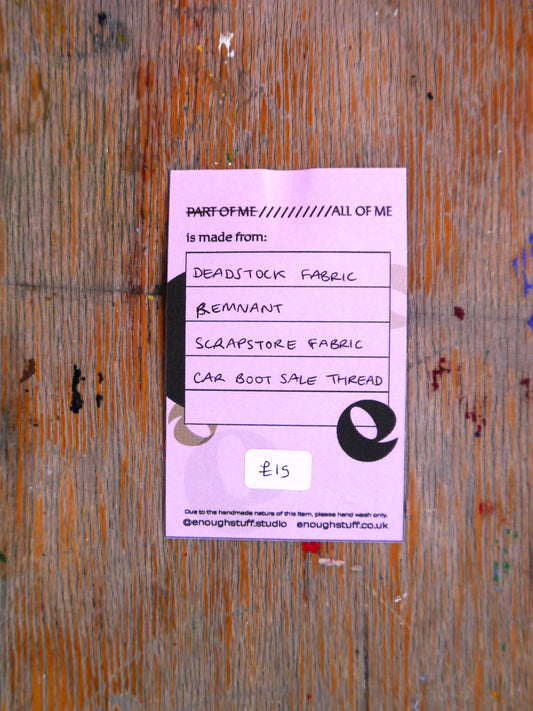 PART OF ME //////////ALL OF ME
is made from:
DEADSTOCK FABRIC
REMNANT
SCRAPSTORE FABRIC
CAR BOOT SALE THREAD
£15
Due to the handmade nature of this item, please hand wash only.
@enoughstuff.studio enoughstuff.co.uk